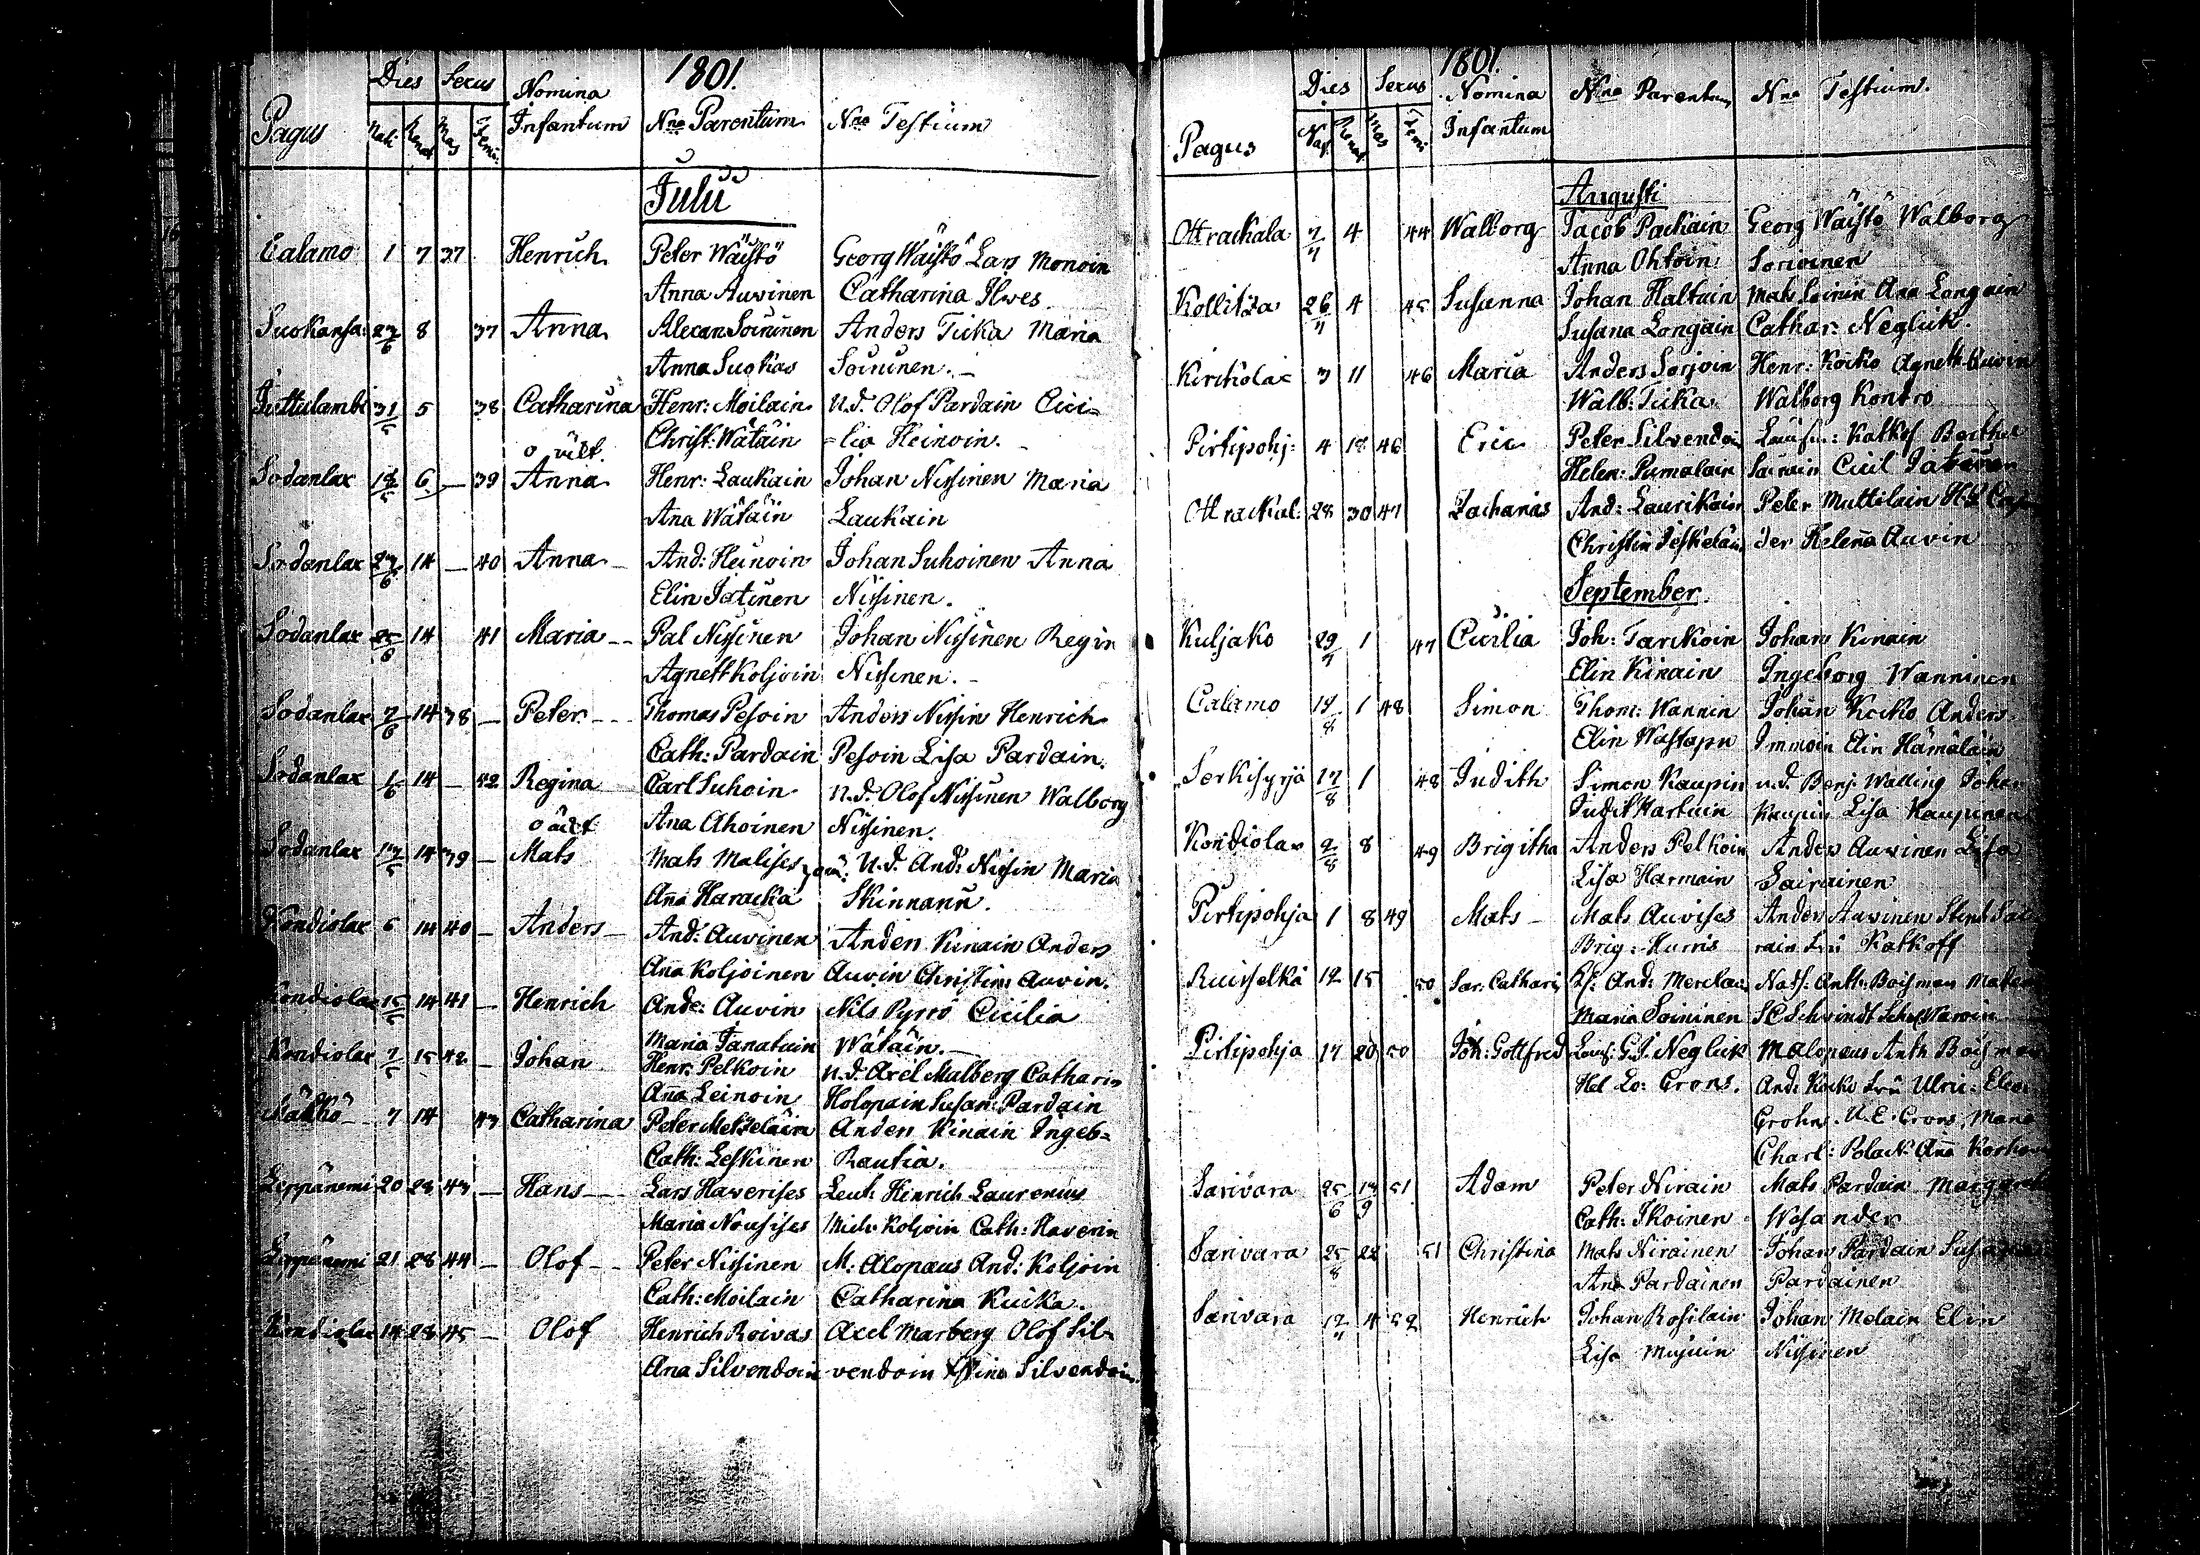 1801.
Dies Sexus Nomina
Pagus Nat. Renat Mas Femi. Infantum Nna Parentum Nna Testium
Julii
Calamo 1 7 37 Henrich Peter Wäistö Georg Wäistö Lars Monoin
Anna Auvinen Catharina Ilves
Suokansa: 27/6 8 37 Anna Alexan Soininen Anders Tiika Maria
Anna Suokas Soininen.
Juttulambi 31/5 5 38 Catharina Henr: Moilain N.d. Olof Pardain Cici=
o äckt. Christ: Wätäin =lia Heinoin.
Sodanlax 18/5 6 — 39 Anna Henr: Laukain Johan Nissinen Maria
Ana Wätäin Laukain
Sodanlax 27/6 14 — 40 Anna And: Heinoin Johan Suhoinen Anna
Elin Jatinen Nissinen.
Sodanlax 25/6 14 41 Maria Pal Nissinen Johan Nissinen Regin
Agnett Koljoin Nissinen.
Sodanlax 7/6 14 38 — Peter Thomas Pesoin Anders Nissin Henrich
Cath: Pardain Pesoin Lisa Pardain.
Sodanlax 1/6 14 — 42 Regina Carl Suhoin N.d. Olof Nissinen Walborg
o äckt Ana Ahoinen Nissinen.
Sodanlax 17/5 14 39 — Mats Mats Malises N.d. And: Nissin Maria
Ana Haracka Skinnari.
Kondiolax 6 14 40 — Anders And: Auvinen Anders Kinain Anders
Ana Koljoinen Auvin Christin Auvin.
Kondiolax 15/6 14 41 — Henrich Ande: Auvin Nils Pyrrö Cicilia
Maria Tanatuin Wätäin.
Kondiolax 7/6 15 42 — Johan Henr: Pelkoin N.d. Axel Malberg Catharin
Ana Leinoin Holopain Susan: Pardain
7 14 43 Catharina Peter Metzeläin Anders Kinain Ingeb=
Cath: Leskinen Rautia.
Leppänemi 20 28 43 — Hans Lars Haverises Leut. Hinrich Laurenius
Maria Nousises Mich: Koljoin Cath: Haverin
Leppänemi 21 28 44 — Olof Peter Nissinen M. Alopæus And: Koljoin
Cath: Moilain Catharina Kuika.
Kondiolax 14 28 45 — Olof Henrich Roivas Axel Marberg Olof Sil=
Ana Silvendoin vendoin Silvendoin.
1801.
Dies Sexus Nomina Nna Parentum Nna Testium.
Pagus Nat. Renat Mas Femi Infantum
Augusti
Ottrackala 7/7 4 44 Walborg Jacob Packain Georg Wäistö Walborg
Anna Ohtoin Sorvoinen
Kollitza 26/7 4 45 Susanna Johan Haltuin Mats Ana Longain
Susana Longain Cathar: Neglick.
Kirckolax 3 11 46 Maria Anders Sorjoin Henr: Kocko Agnett
Walb: Tiika Walborg Kontro
Pirtipohj: 4 18 46 Eric Peter Silvendoin
Helen: Pumalain Cicil
Ottrackal: 28 30 47 Zacharias And: Laurikain Peter Muttilain
Christin der Helena Auvin
September
Kuljako 29/7 1 47 Cicilia Joh: Tarckoin Johan Kinain
Elin Kinain Ingeborg Wanninen
Calamo 18/8 1 48 Simon Thom: Wannin Johan Kocko Anders
Elin Wastapu Immoin Elin Hämäläin
Serkisyrjä 17/8 1 48 Judith Simon Kaupin n.d. Benj: Walling Johan
Judit Hartuin Kaupin Lisa Kaupinen
Kondiolax 2/8 8 49 Brigitha Anders Pelkoin Anders Auvinen Lisa
Lisa Harmain Sairainen
Pirtipohja 1 8 49 Mats — Mats Auvises Anders Auvinen
Brig: Hurris rain Frü Katkoff
Ruisselkä 12 15 50 Sar: Catharin And: Merclau Anth: Boisman
Maria Soininen Schvindt
Pirtipohja 17 20 50 Joh: Gottfred G.J. Neglick M Alopæus Anth Boisman
Hel Lo: Crons. And: Kocko Frü Ulri: Eleon
Grohn. U.E: Crons, Maria
Charl: Polack Ana Korhon
Sarivara 25/6 13/9 51 Adam Peter Nirain Mats Pardain Margareta
Cath: Ikoinen Wosander
Sarivara 25/8 22 51 Christina Mats Nirainen Johan Pardain Susanna
Ana Pardainen Pardainen
Sarivara 12/11 4 52 Henrich Johan Rosilain Johan Molain Elin
Lisa Mujuin Nissinen